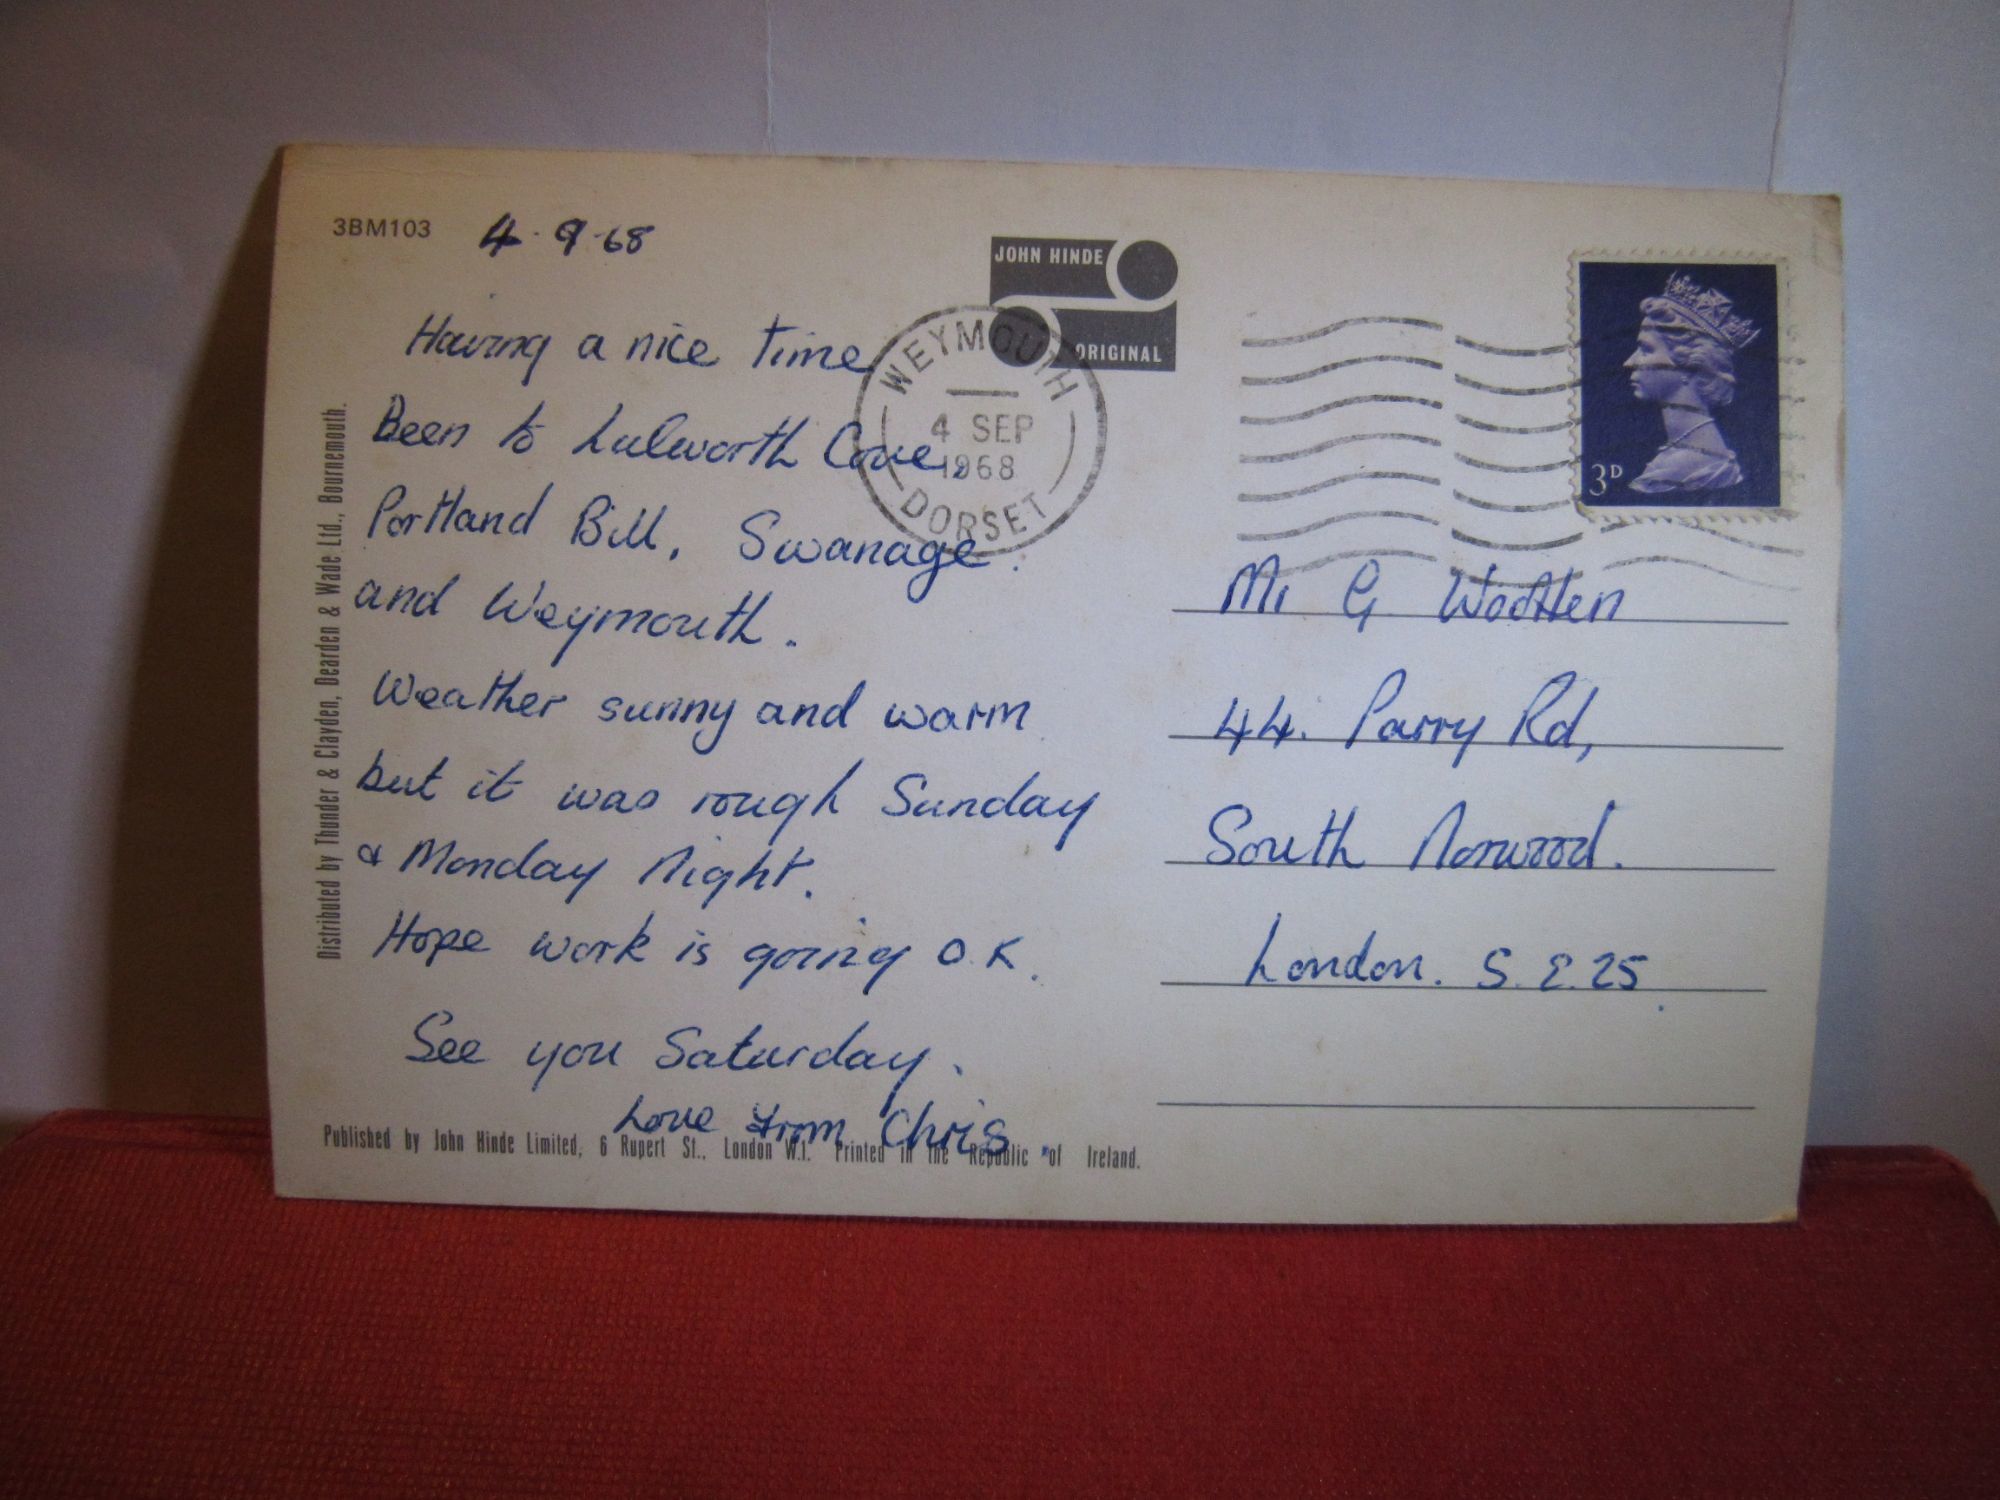 3BM103
4·9·68
JOHN HINDE
ORIGINAL
WEYMOUTH
4 SEP
1968
DORSET
3D
Having a nice time
Been to Lulworth Cove,
Portland Bill, Swanage
and Weymouth.
Weather sunny and warm
but it was rough Sunday
& Monday Night.
Hope work is going O.K.
See you Saturday.
Love from Chris.
Mr G Wootten
44. Parry Rd,
South Norwood.
London. S.E.25.
Distributed by Thunder & Clayden, Dearden & Wade Ltd., Bournemouth.
Published by John Hinde Limited, 6 Rupert St., London W.1. Printed in the Republic of Ireland.